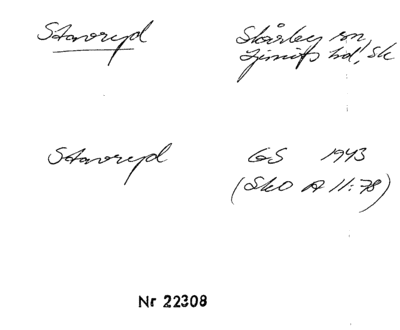 Stavryd Skårby sn,
Ljunits hd, Sk
Stavryd GS 1943
(SkO A 11:78)
Nr 22308